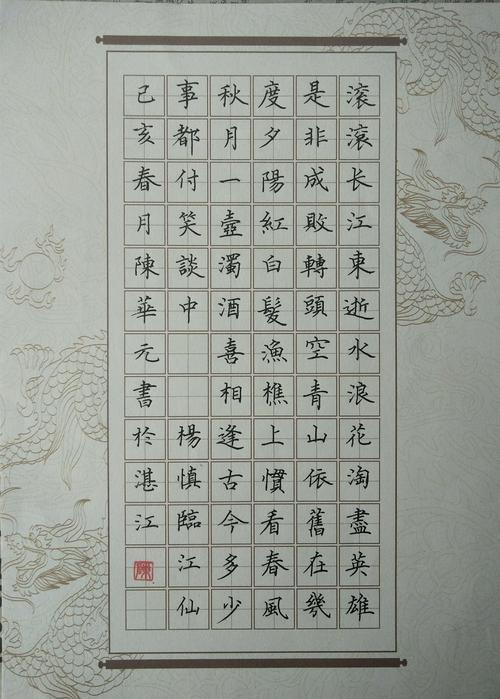 滚滚长江東逝水浪花淘盡英雄
是非成敗轉頭空青山依舊在幾
度夕陽紅白髮漁樵上慣看春風
秋月一壺濁酒喜相逢古今多少
事都付笑談中 楊慎臨江仙
己亥春月陳華元書於湛江